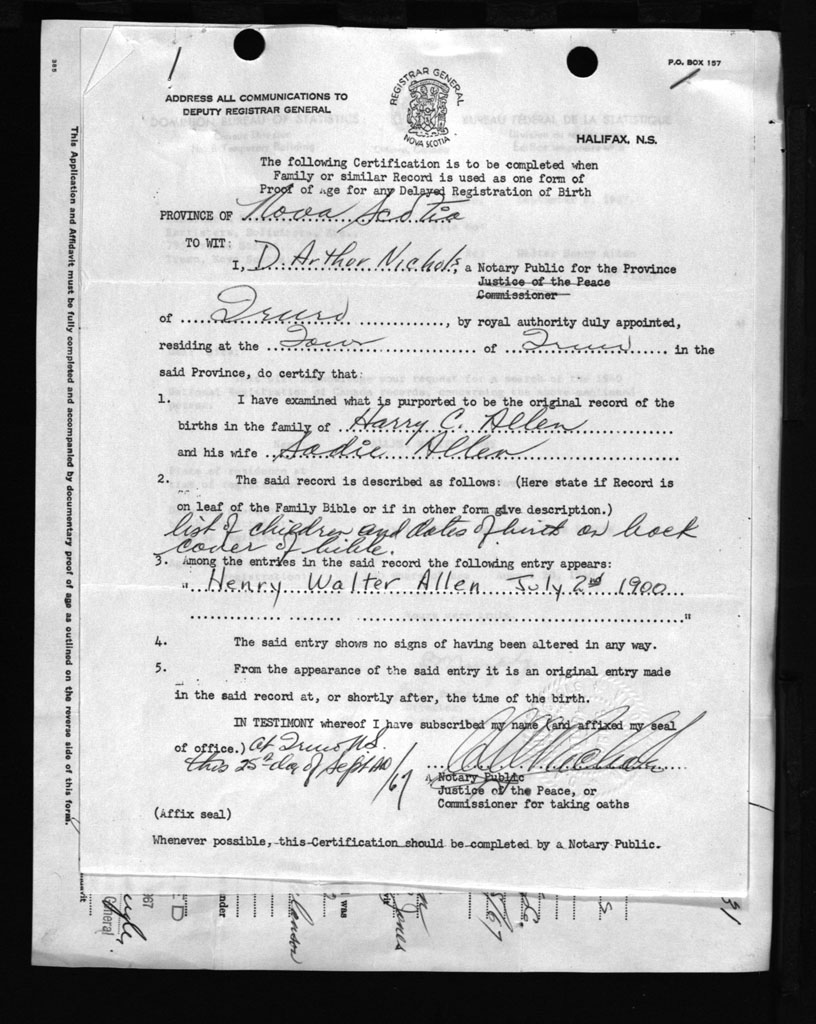 P.O. BOX 157
385
ADDRESS ALL COMMUNICATIONS TO
DEPUTY REGISTRAR GENERAL
REGISTRAR GENERAL
NOVA SCOTIA
HALIFAX, N.S.
The following Certification is to be completed when
Family or similar Record is used as one form of
Proof of Age for any Delayed Registration of Birth
PROVINCE OF Nova Scotia
TO WIT:
I, D. Arthur Nichols, a Notary Public for the Province
Justice of the Peace
Commissioner
of Truro, by royal authority duly appointed,
residing at the Town of Truro in the
said Province, do certify that:
1. I have examined what is purported to be the original record of the
births in the family of Harry C. Allen
and his wife Sadie Allen
2. The said record is described as follows: (Here state if Record is
on leaf of the Family Bible or if in other form give description.)
list of children and dates of birth on back
cover of bible.
3. Among the entries in the said record the following entry appears:
" Henry Walter Allen July 2nd 1900
"
4. The said entry shows no signs of having been altered in any way.
5. From the appearance of the said entry it is an original entry made
in the said record at, or shortly after, the time of the birth.
IN TESTIMONY whereof I have subscribed my name (and affixed my seal
of office.) at Truro N.S.
this 25th day of Sept AD /67
A Notary Public
Justice of the Peace, or
Commissioner for taking oaths
(Affix seal)
Whenever possible, this Certification should be completed by a Notary Public.
This Application and Affidavit must be fully completed and accompanied by documentary proof of age as outlined on the reverse side of this form.
General
967
under
I was
31